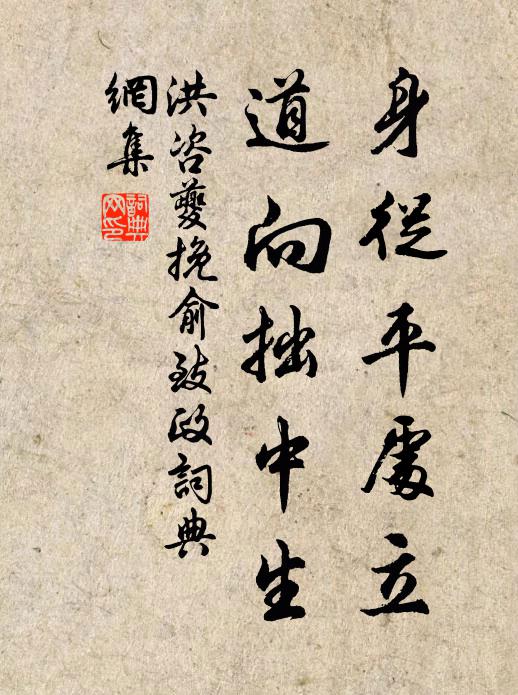 身從平處立
道向拙中生
洪咨夔挽俞致政詞典
網集
詞典
網印